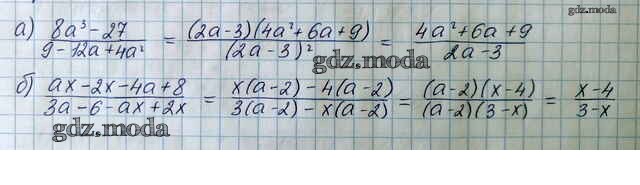 gdz.moda
а) 8a³ – 27 / 9 – 12a + 4a² = (2a – 3)(4a² + 6a + 9) / (2a – 3)² = 4a² + 6a + 9 / 2a – 3
gdz.moda
б) ax – 2x – 4a + 8 / 3a – 6 – ax + 2x = x(a – 2) – 4(a – 2) / 3(a – 2) – x(a – 2) = (a – 2)(x – 4) / (a – 2)(3 – x) = x – 4 / 3 – x
gdz.moda
gdz.moda